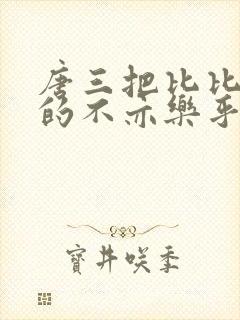 唐三把比比
的不亦樂乎
寶井咲季